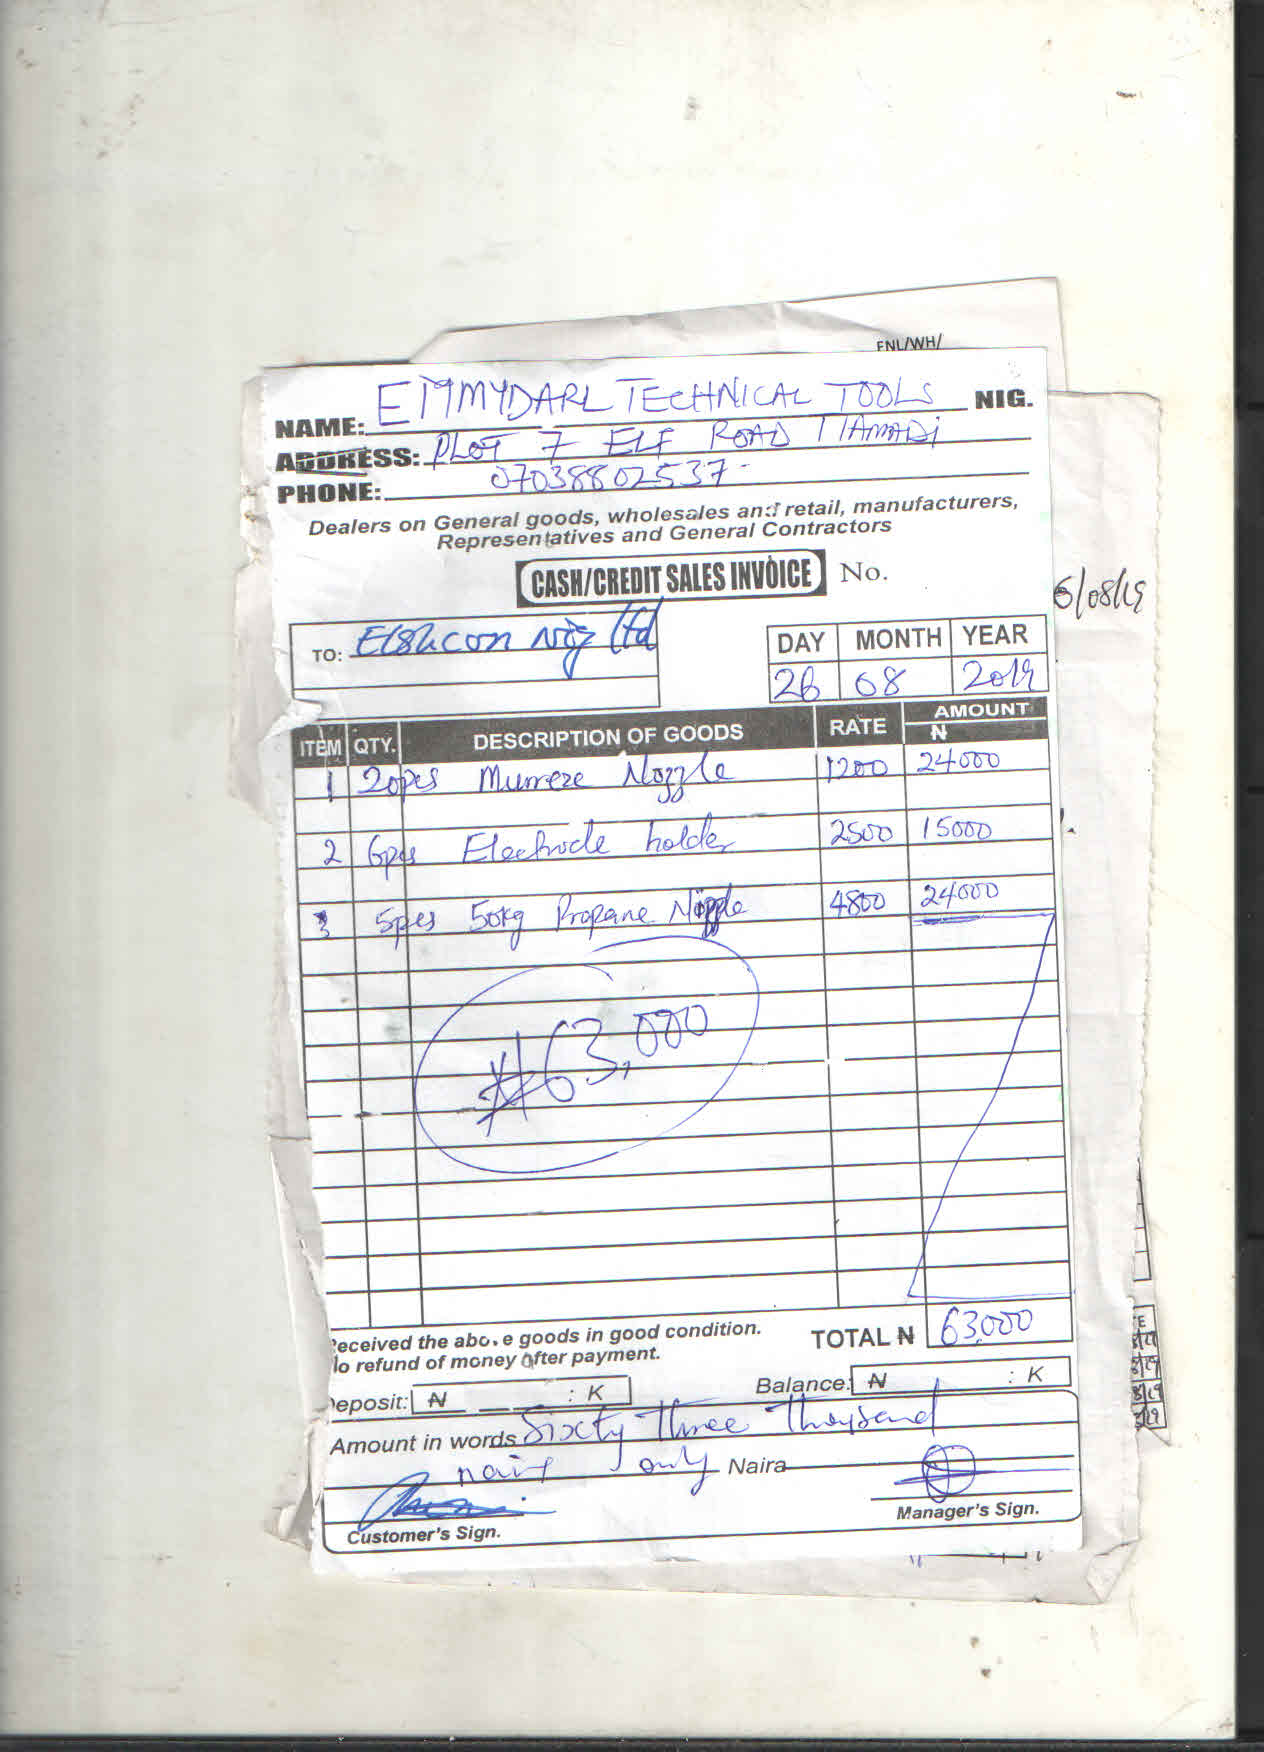 FNL/WH/
NAME: EMMYDARL TECHNICAL TOOLS NIG.
ADDRESS: PLOT 7 ELF ROAD
PHONE: 07038802537
Dealers on General goods, wholesales and retail, manufacturers,
Representatives and General Contractors
CASH/CREDIT SALES INVOICE No.
6/08/19
TO: Elshcon Nig Ltd
DAY MONTH YEAR
26 08 2019
ITEM QTY. DESCRIPTION OF GOODS RATE AMOUNT
₦
1 20pcs Nozzle 1200 24000
2 6pcs Electrode holder 2500 15000
3 5pcs 50kg Propane Nozzle 4800 24000
₦63,000
eceived the above goods in good condition. TOTAL ₦ 63,000
o refund of money after payment.
eposit: ₦ : K Balance: ₦ : K
Amount in words Sixty three thousand
naira only Naira
Customer's Sign. Manager's Sign.